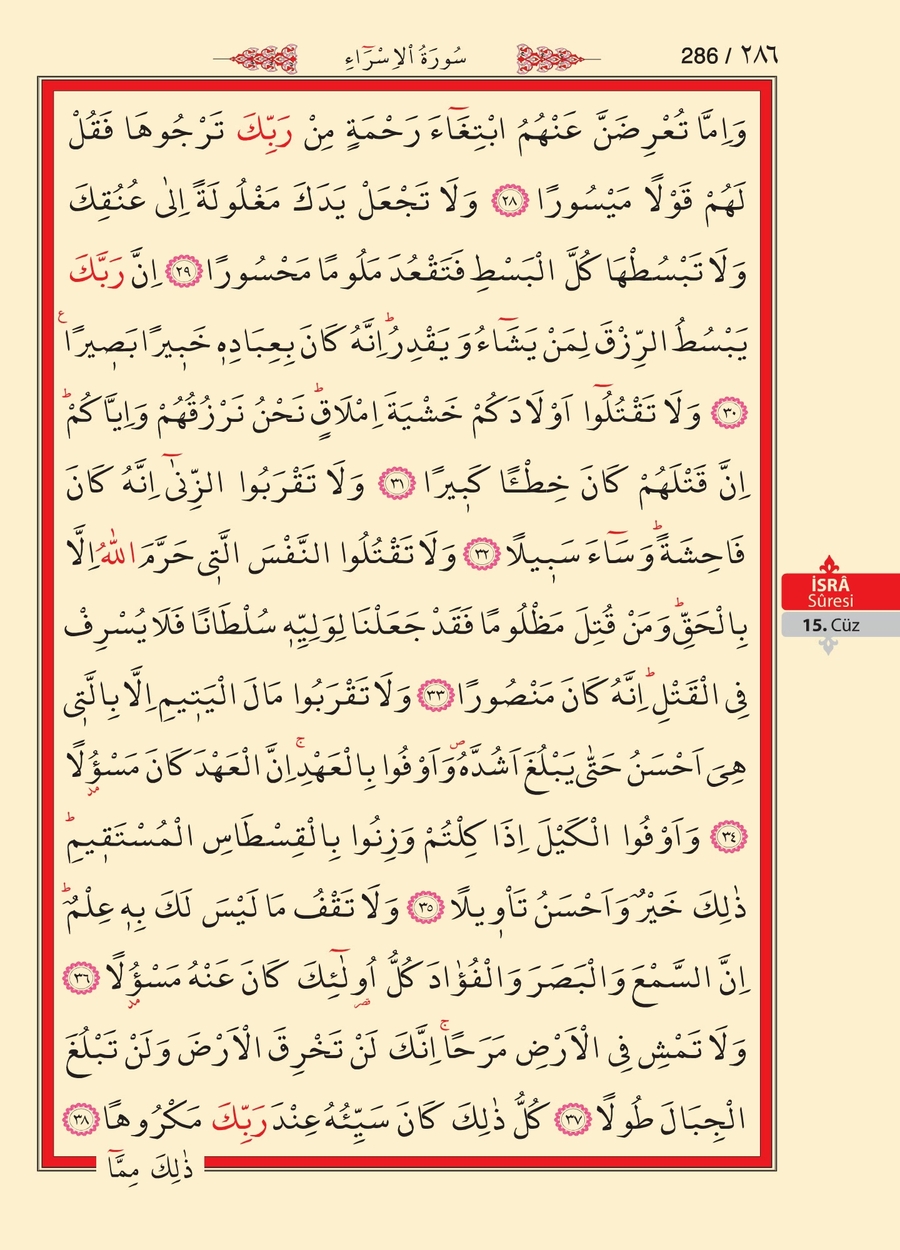 286 / ٢٨٦
سُورَةُ الْاِسْرَٓاءِ
وَاِمَّا تُعْرِضَنَّ عَنْهُمُ ابْتِغَٓاءَ رَحْمَةٍ مِنْ رَبِّكَ تَرْجُوهَا فَقُلْ
لَهُمْ قَوْلًا مَيْسُورًا ﴿٢٨﴾ وَلَا تَجْعَلْ يَدَكَ مَغْلُولَةً اِلٰى عُنُقِكَ
وَلَا تَبْسُطْهَا كُلَّ الْبَسْطِ فَتَقْعُدَ مَلُومًا مَحْسُورًا ﴿٢٩﴾ اِنَّ رَبَّكَ
يَبْسُطُ الرِّزْقَ لِمَنْ يَشَٓاءُ وَيَقْدِرُۜ اِنَّهُ كَانَ بِعِبَادِه۪ خَب۪يرًا بَص۪يرًاع
﴿٣٠﴾ وَلَا تَقْتُلُٓوا اَوْلَادَكُمْ خَشْيَةَ اِمْلَاقٍۜ نَحْنُ نَرْزُقُهُمْ وَاِيَّاكُمْۜ
اِنَّ قَتْلَهُمْ كَانَ خِطْـًٔا كَب۪يرًا ﴿٣١﴾ وَلَا تَقْرَبُوا الزِّنٰٓى اِنَّهُ كَانَ
فَاحِشَةًۜ وَسَٓاءَ سَب۪يلًا ﴿٣٢﴾ وَلَا تَقْتُلُوا النَّفْسَ الَّت۪ي حَرَّمَ اللّٰهُ اِلَّا
بِالْحَقِّۜ وَمَنْ قُتِلَ مَظْلُومًا فَقَدْ جَعَلْنَا لِوَلِيِّه۪ سُلْطَانًا فَلَا يُسْرِفْ
فِي الْقَتْلِۜ اِنَّهُ كَانَ مَنْصُورًا ﴿٣٣﴾ وَلَا تَقْرَبُوا مَالَ الْيَت۪يمِ اِلَّا بِالَّت۪ي
هِيَ اَحْسَنُ حَتّٰى يَبْلُغَ اَشُدَّهُۖ وَاَوْفُوا بِالْعَهْدِۚ اِنَّ الْعَهْدَ كَانَ مَسْؤُ۫لًا
﴿٣٤﴾ وَاَوْفُوا الْكَيْلَ اِذَا كِلْتُمْ وَزِنُوا بِالْقِسْطَاسِ الْمُسْتَق۪يمِۜ
ذٰلِكَ خَيْرٌ وَاَحْسَنُ تَأْو۪يلًا ﴿٣٥﴾ وَلَا تَقْفُ مَا لَيْسَ لَكَ بِه۪ عِلْمٌۜ
اِنَّ السَّمْعَ وَالْبَصَرَ وَالْفُؤٰادَ كُلُّ اُو۬لٰٓئِكَ كَانَ عَنْهُ مَسْؤُ۫لًا ﴿٣٦﴾
وَلَا تَمْشِ فِي الْاَرْضِ مَرَحًاۚ اِنَّكَ لَنْ تَخْرِقَ الْاَرْضَ وَلَنْ تَبْلُغَ
الْجِبَالَ طُولًا ﴿٣٧﴾ كُلُّ ذٰلِكَ كَانَ سَيِّئُهُ عِنْدَ رَبِّكَ مَكْرُوهًا ﴿٣٨﴾
ذٰلِكَ مِمَّٓا
İSRÂ
Sûresi
15. Cüz